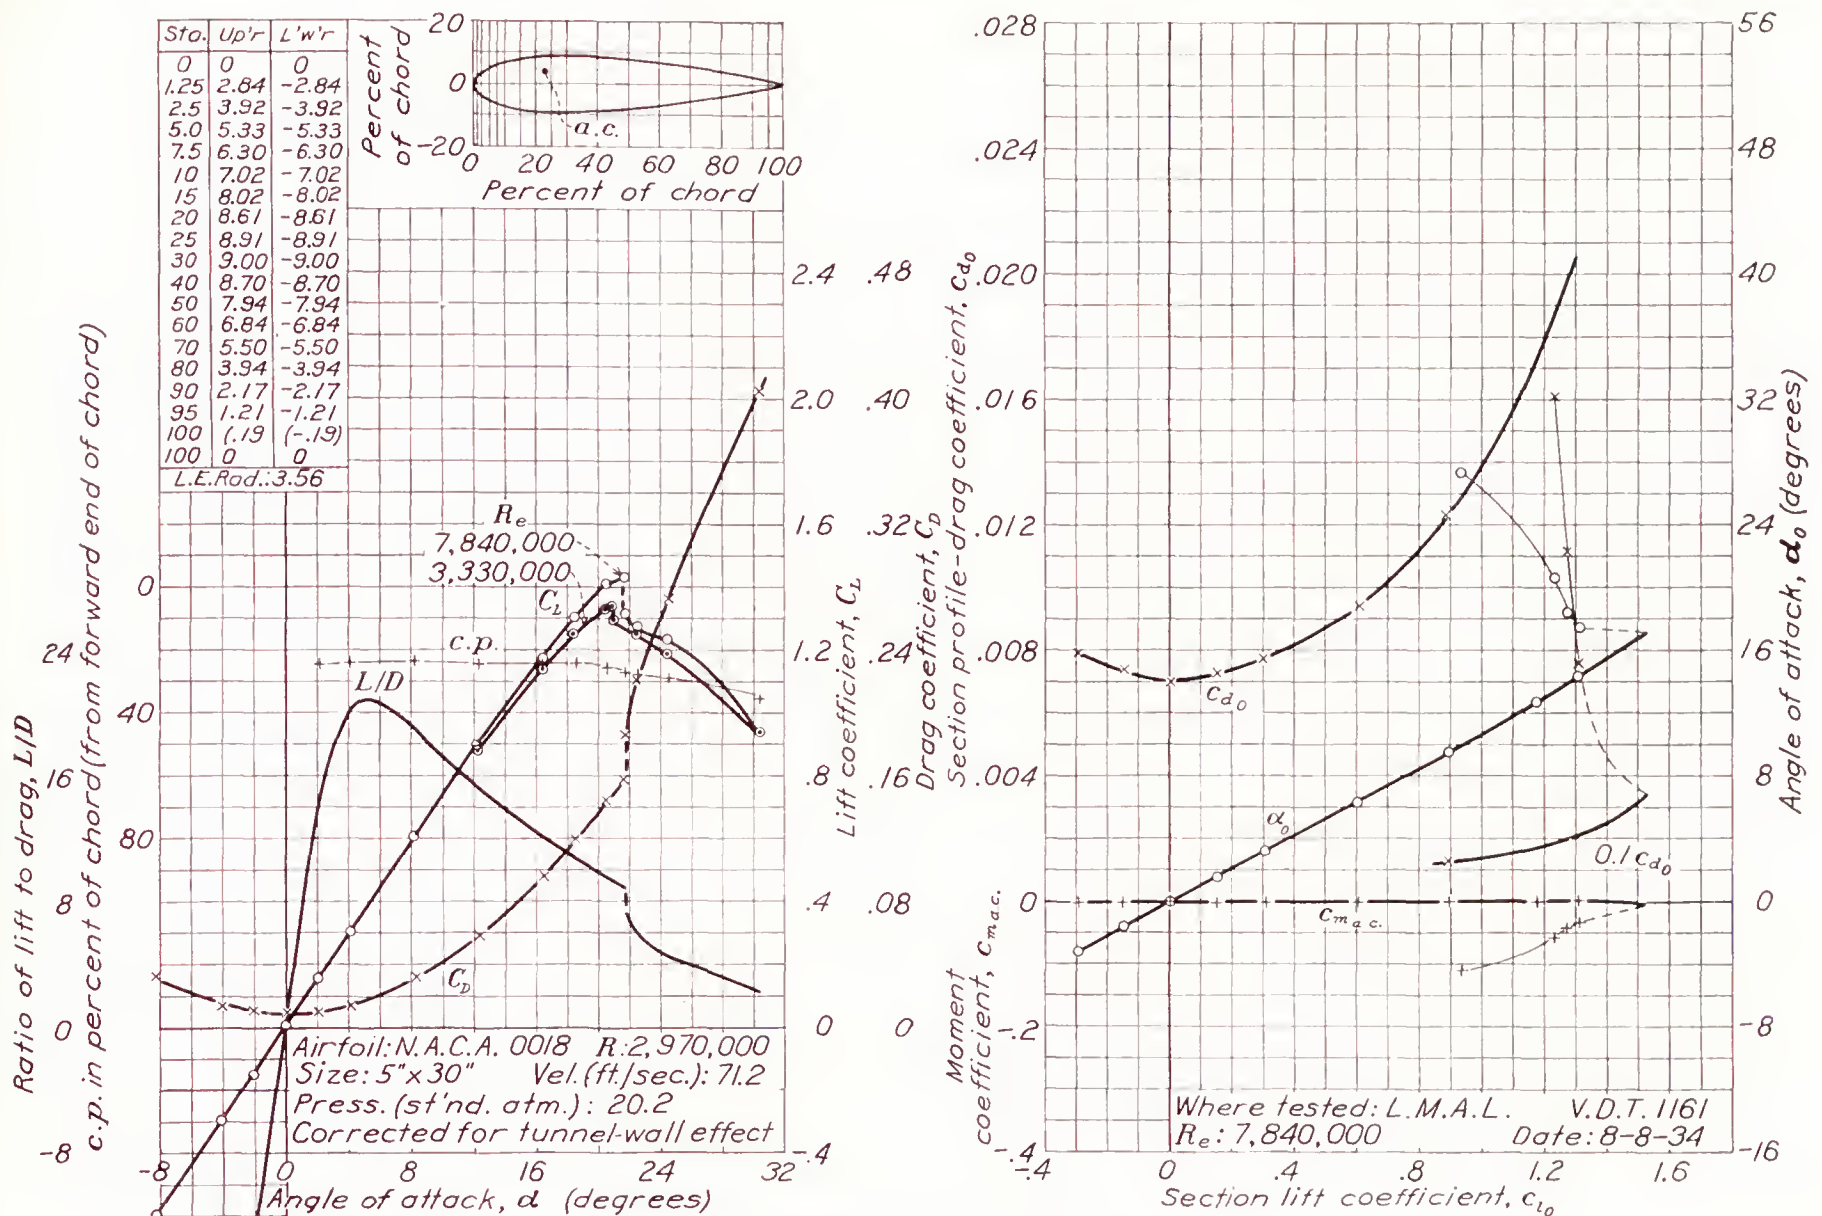 Sta. Up'r L'w'r
0 0 0
1.25 2.84 -2.84
2.5 3.92 -3.92
5.0 5.33 -5.33
7.5 6.30 -6.30
10 7.02 -7.02
15 8.02 -8.02
20 8.61 -8.61
25 8.91 -8.91
30 9.00 -9.00
40 8.70 -8.70
50 7.94 -7.94
60 6.84 -6.84
70 5.50 -5.50
80 3.94 -3.94
90 2.17 -2.17
95 1.21 -1.21
100 (.19 (-.19)
100 0 0
L.E.Rad.:3.56
Percent of chord
20
0
-20
a.c.
0 20 40 60 80 100
Percent of chord
Ratio of lift to drag, L/D
24
16
8
0
-8
c.p. in percent of chord (from forward end of chord)
0
40
80
Re
7,840,000
3,330,000
CL
c.p.
L/D
CD
2.4
2.0
1.6
1.2
.8
.4
0
-.4
Lift coefficient, CL
.48
.40
.32
.24
.16
.08
0
Drag coefficient, CD
Airfoil: N.A.C.A. 0018 R:2,970,000
Size: 5"x30" Vel.(ft./sec.): 71.2
Press.(st'nd. atm.): 20.2
Corrected for tunnel-wall effect
-8 0 8 16 24 32
Angle of attack, α (degrees)
Section profile-drag coefficient, cd0
.028
.024
.020
.016
.012
.008
.004
0
-.2
-.4
Moment coefficient, cma.c.
cd0
α0
0.1 cd0
cma.c.
56
48
40
32
24
16
8
0
-8
-16
Angle of attack, α0 (degrees)
Where tested: L.M.A.L. V.D.T. 1161
Re: 7,840,000 Date: 8-8-34
-.4 0 .4 .8 1.2 1.6
Section lift coefficient, cl0